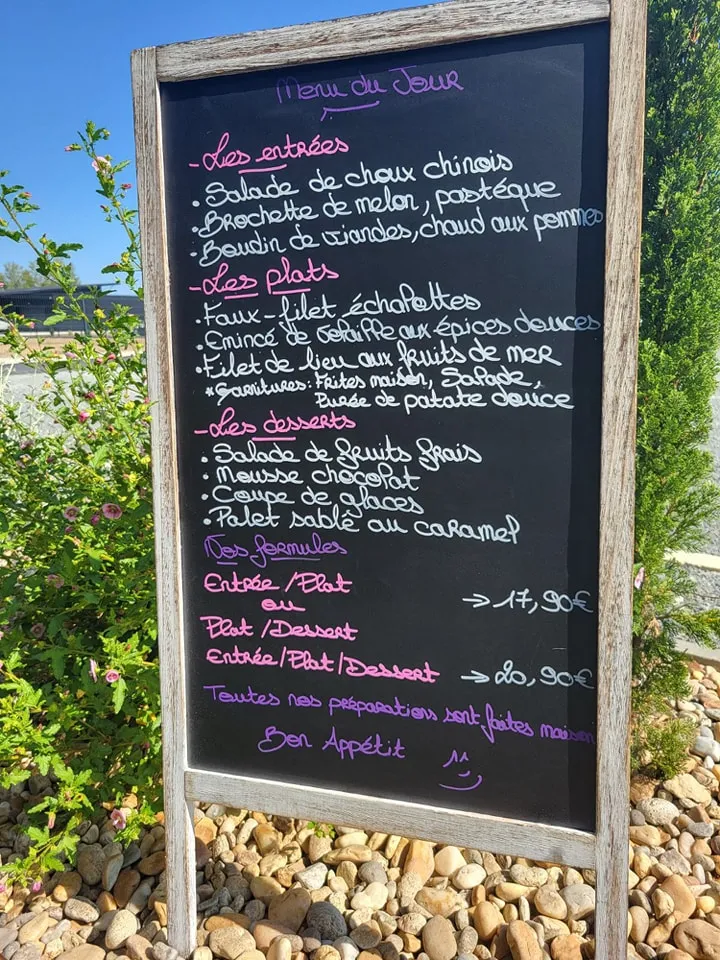 Menu du Jour
- Les entrées
• Salade de choux chinois
• Brochette de melon, pastéque
• Boudin de viandes, chaud aux pommes
- Les plats
• Faux-filet échalottes
• Emincé de volaille aux épices douces
• Filet de lieu aux fruits de mer
* Garnitures: Frites maison, Salade,
Purée de patate douce
- Les desserts
• Salade de fruits frais
• Mousse chocolat
• Coupe de glaces
• Palet sablê au caramel
Nos formules
Entrée / Plat
ou → 17,90€
Plat / Dessert
Entrée / Plat / Dessert → 20,90€
Toutes nos préparations sont faites maison
Bon Appétit